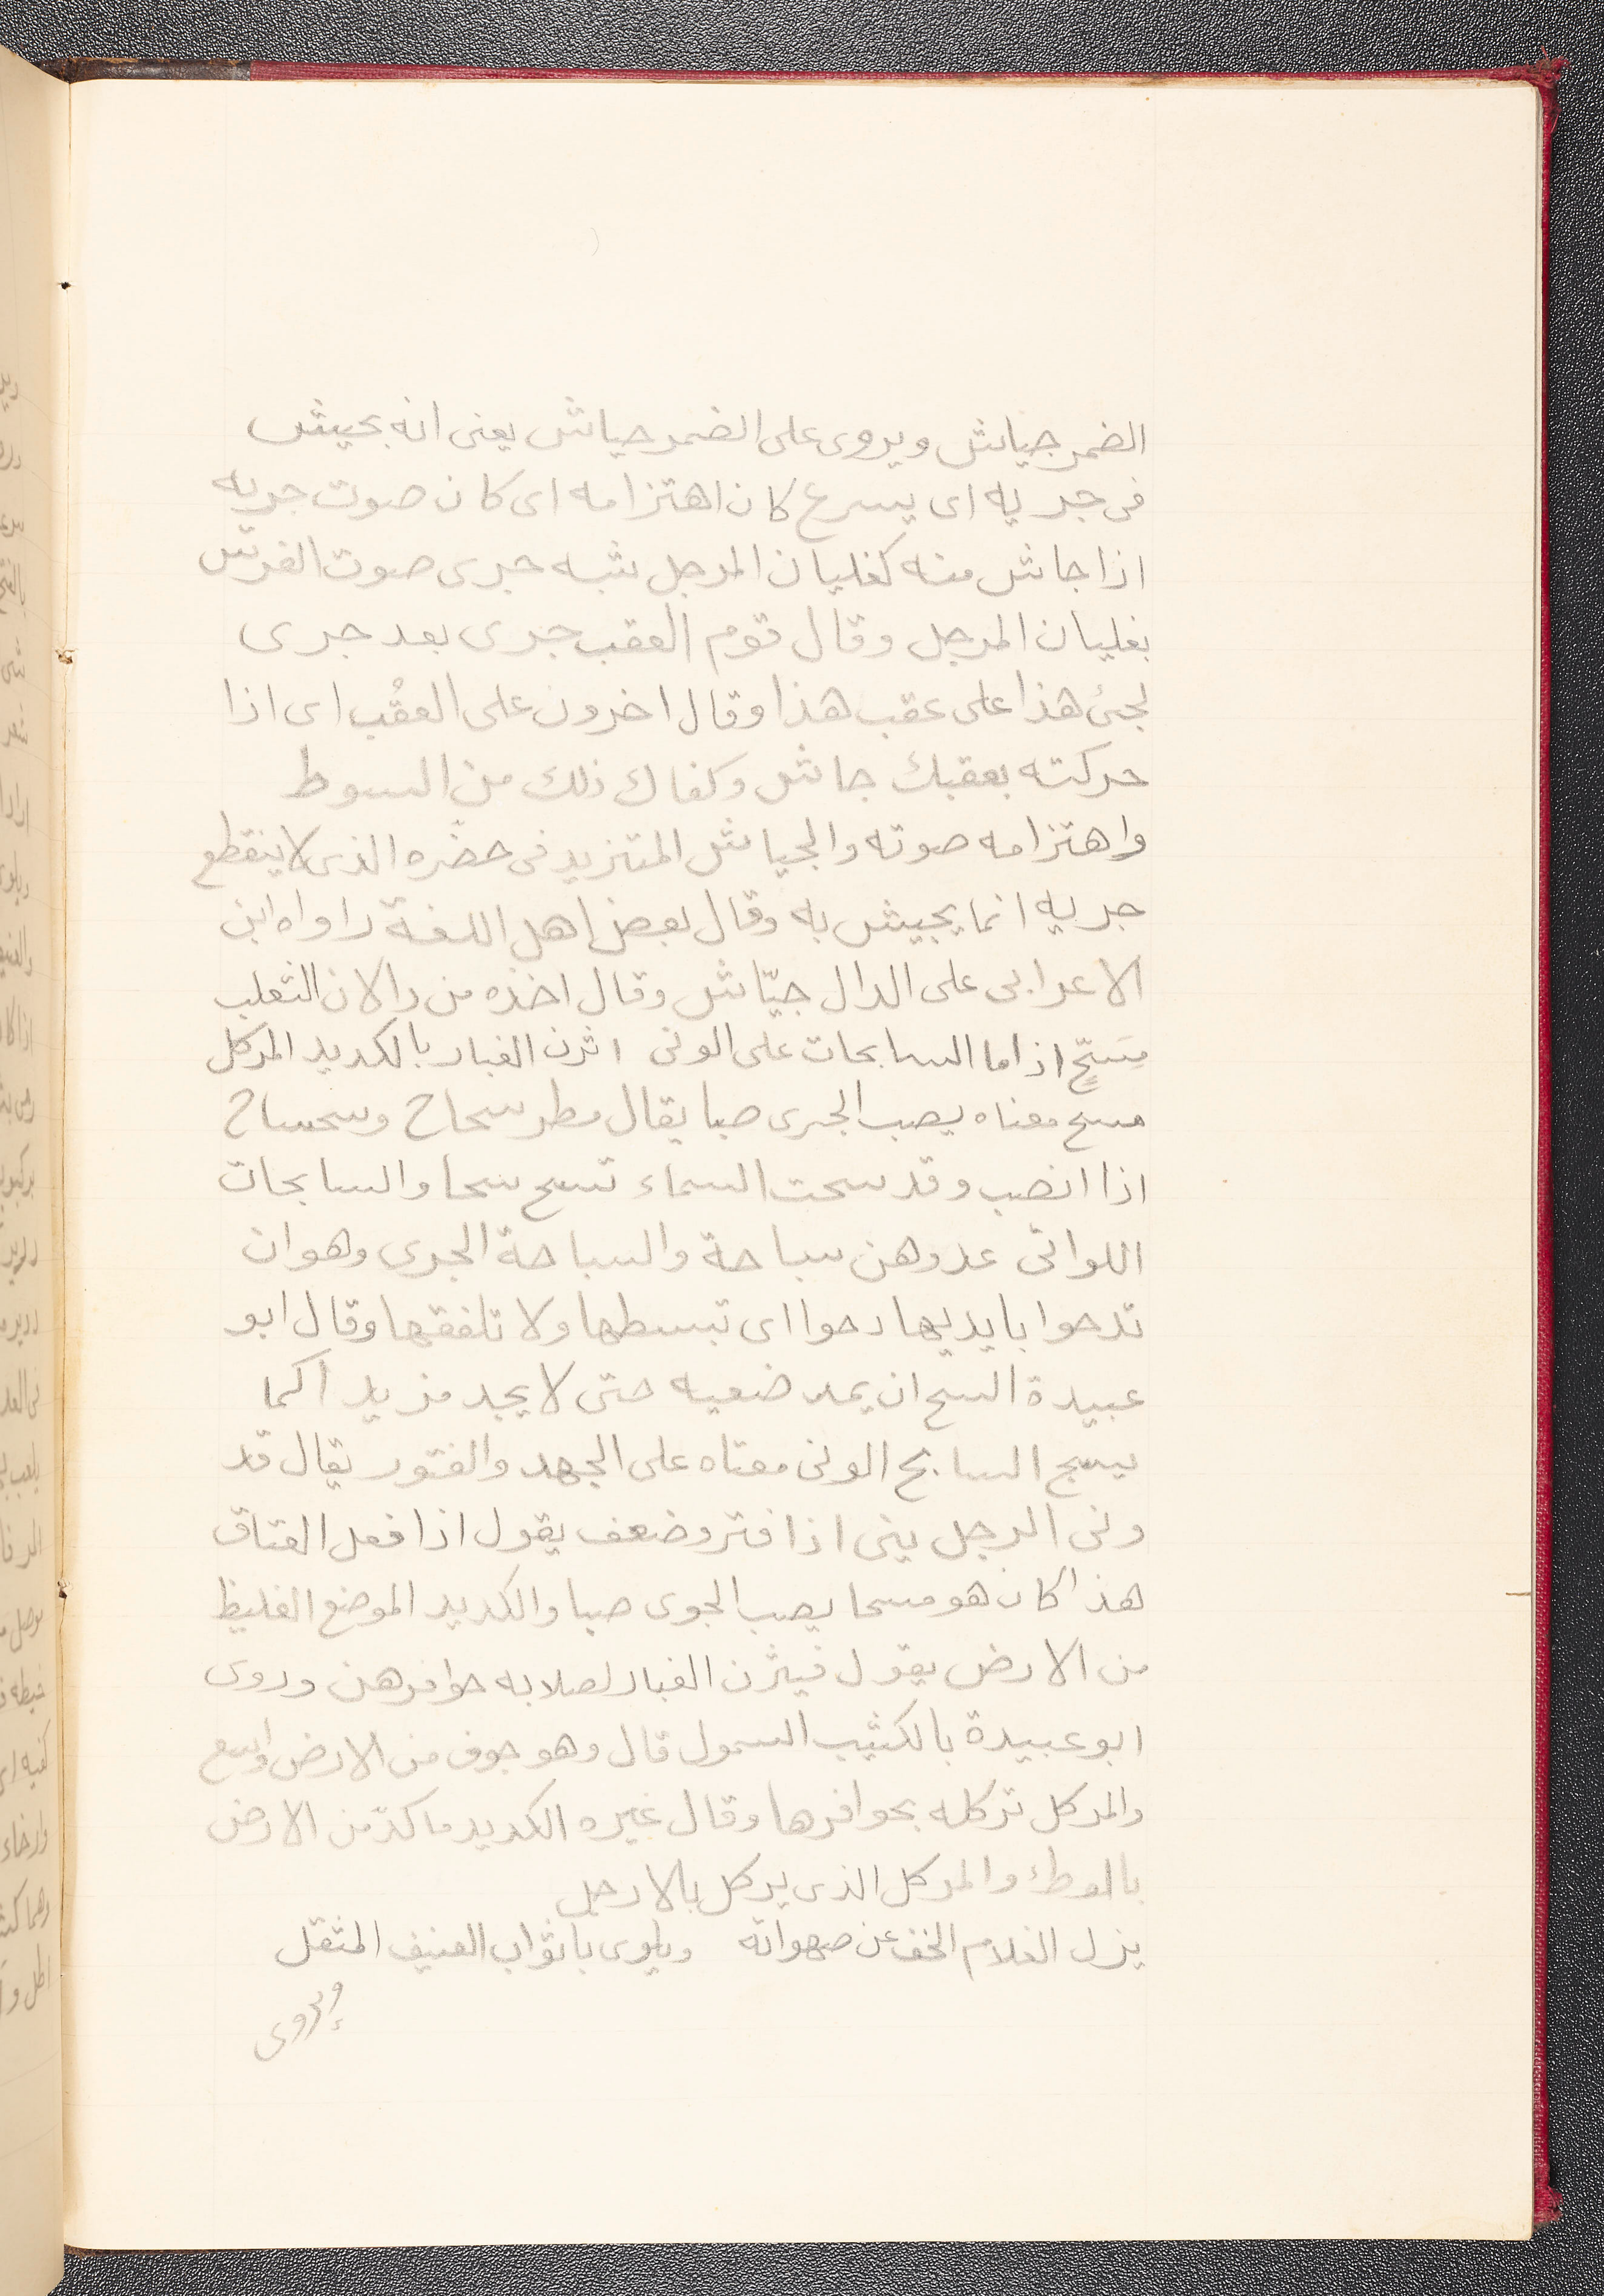 الضمر جياش ويروى على الضمر جياش يعنى انه بجيش
فى جريه اى يسرع كان اهتزامه اى كان صوت جريه
اذا جاش منه كغليان المرجل شبه جرى صوت الفرش
بغليان المرجل وقال قوم العقب جرى بعد جرى
لجئ هذا على عقب هذا وقال اخرون على العقُب اى اذا
حركته بعقبك جاش وكفاك ذلك من السوط
واهتزامه صوته والجياش المتزيد فى حضره الذى لا ينقطع
جريه انما يجيش به وقال بعض اهل اللغة راواه ابن
الاعرابى على الدال جيّاش وقال اخذه من دالان الثعلب
مِسَحٍّ اذا ما السابحات على الونى اثرن الغبار بالكديد المركل
مسح معناه يصب الجرى صبا يقال مطر سحاح وسحساح
اذا انصب وقد سحت السماء تسح سحا والسابحات
اللواتى عدوهن سباحة والسباحة الجرى وهو ان
تدحوا بايديها دحوا اى تبسطها ولا تلفقها وقال ابو
عبيدة السح ان يمد ضعيه حتى لا يجد مزيدا كما
يسبح السابح الونى معناه على الجهد والفتور يقال قد
ونى الرجل ينى اذا فتر وضعف يقول اذا فعل العتاق
هذا كان هو مسحا يصب الجرى صبا والكديد الموضع الغليظ
من الارض يقول فيثرن الغبار لصلابه حوافرهن وروى
ابو عبيدة بالكثيب السمول قال وهو جوف من الارض واسع
والمركل تركله بحوافرها وقال غيره الكديد ما كدّ من الارض
بالوطء والمركل الذى يركل بالارجل
يزل الغلام الخف عن صهواته ويلوى باثواب العنيف المثقل
ويروى